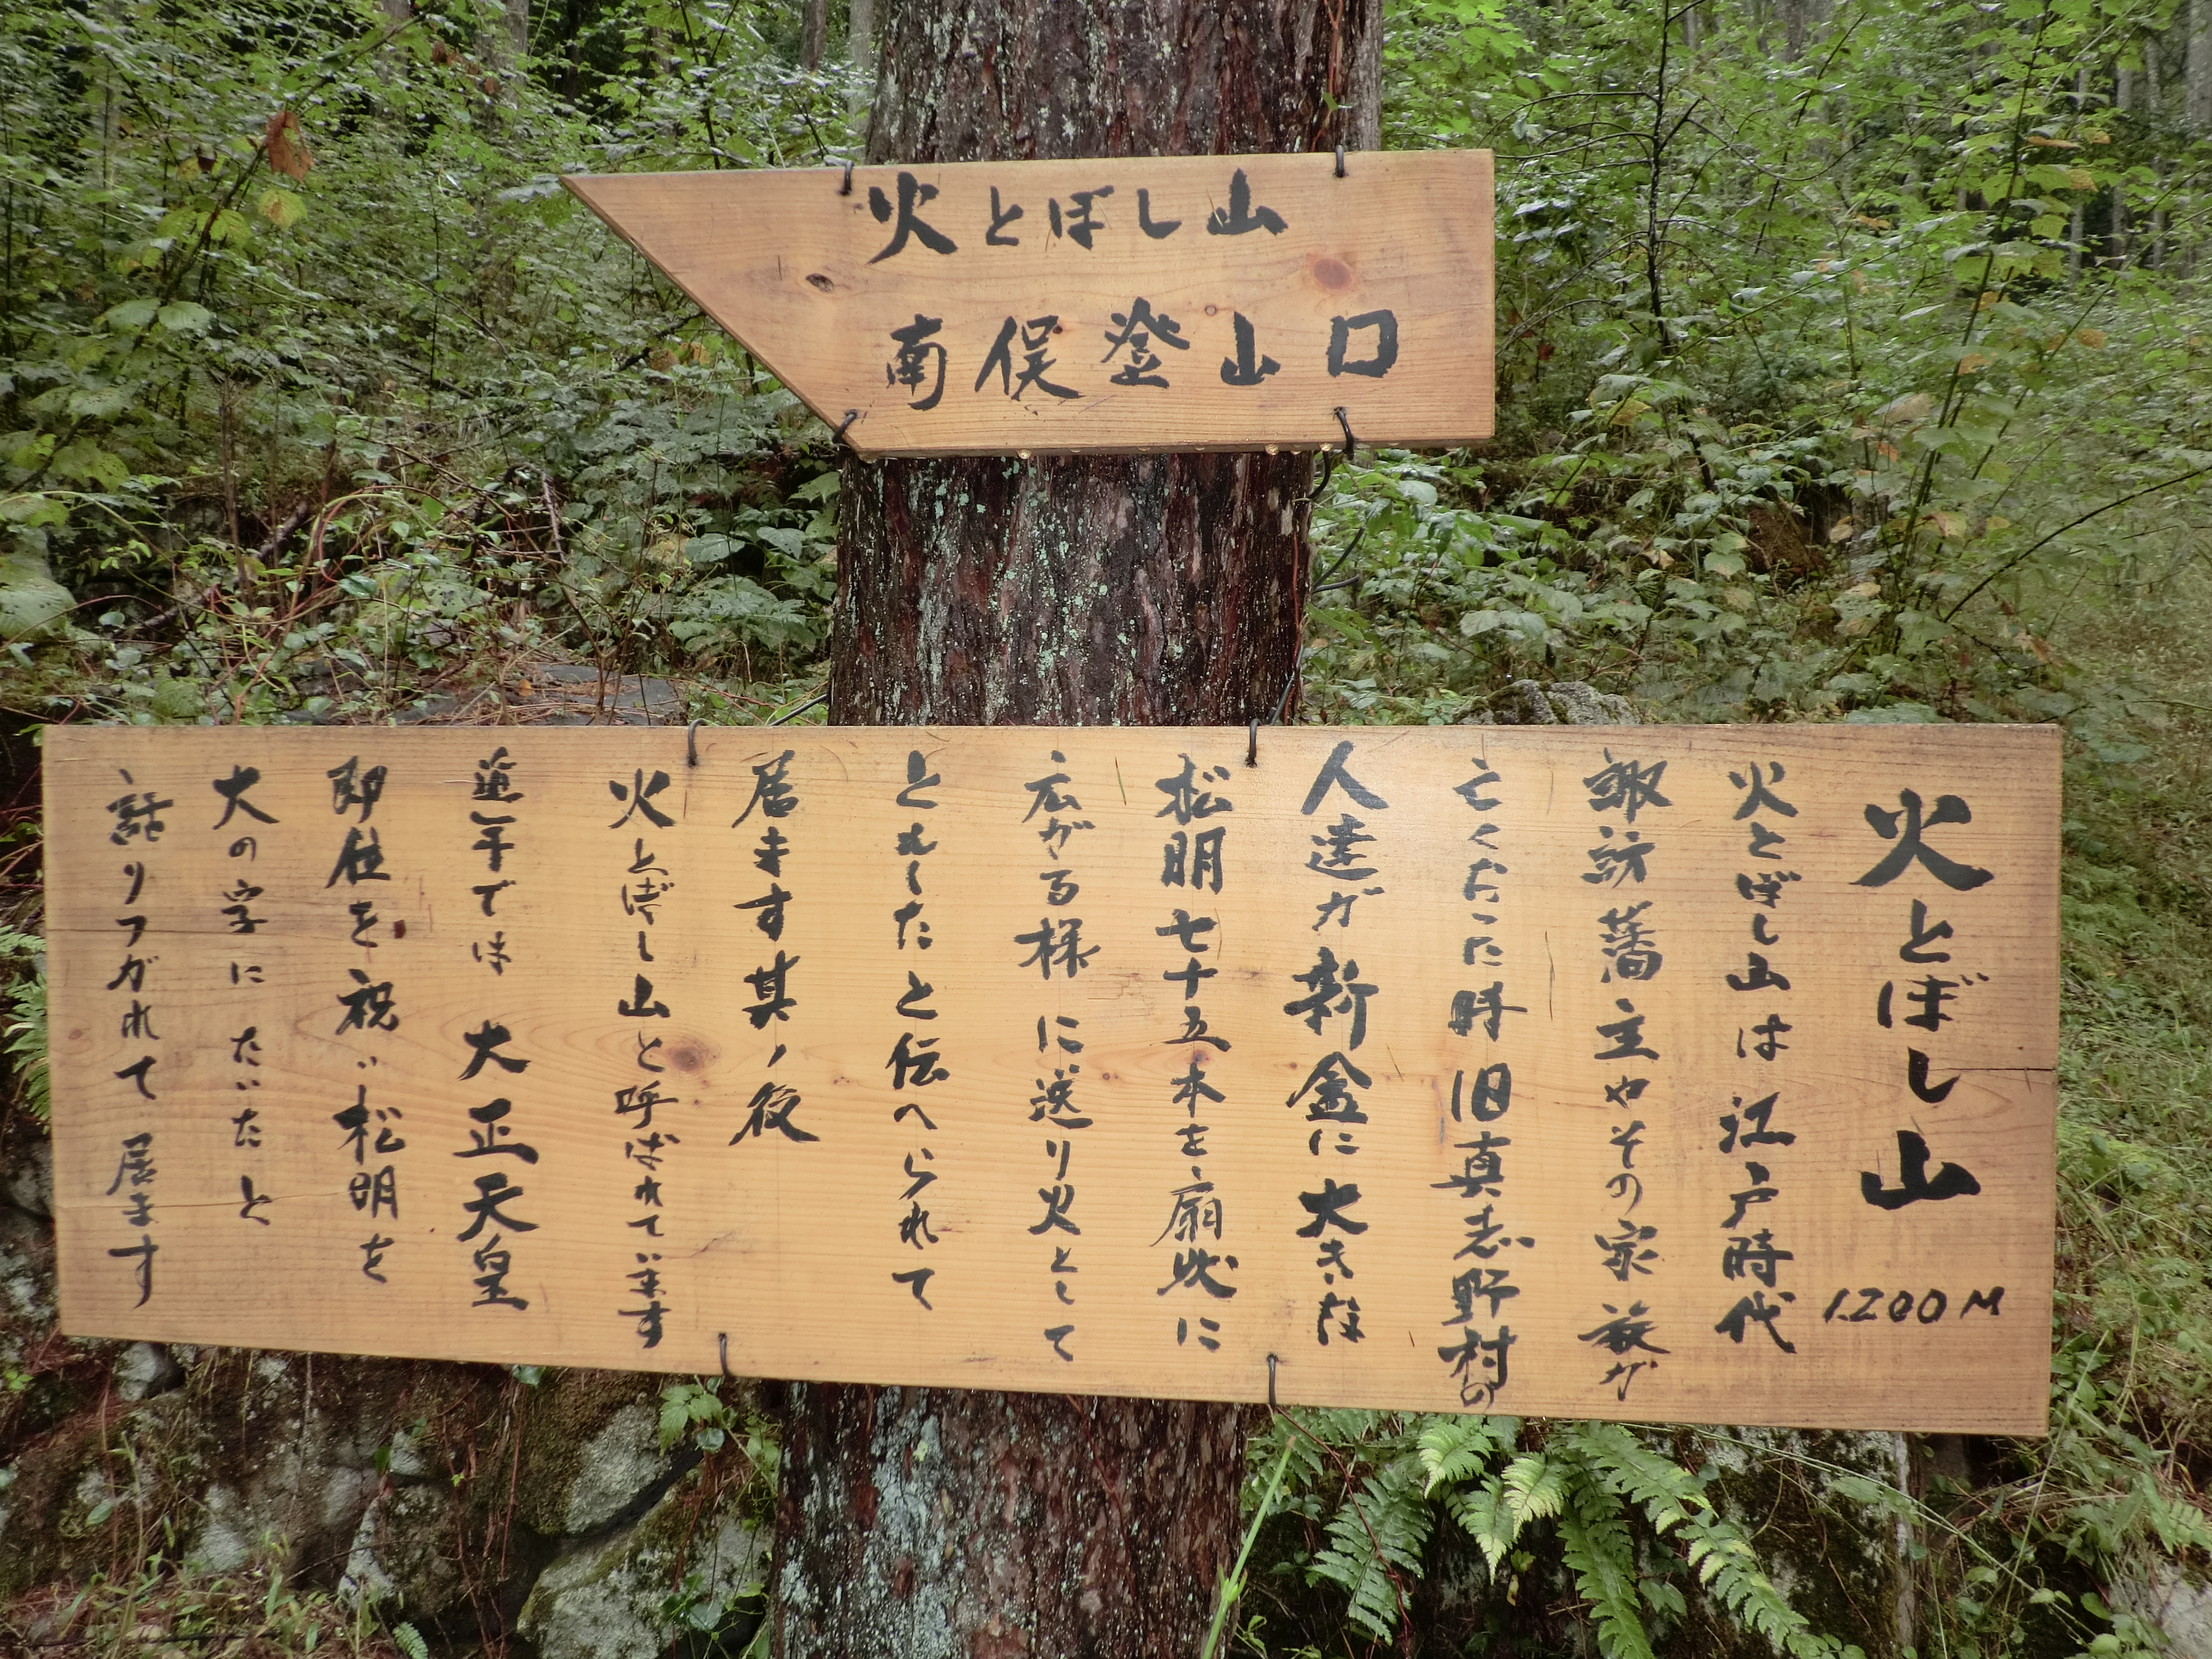 火とぼし山
南俣登山口
火とぼし山 1200M
火とぼし山は江戸時代
諏訪藩主やその家族が
亡くなった時旧真志野村の
人達が新金に大きな
松明七十五本を扇状に
広がる様に送り火として
ともしたと伝へられて
居ます其ノ後
火とぼし山と呼ばれています
近年では大正天皇
即位を祝い松明を
大の字にたいたと
語りつがれて居ます